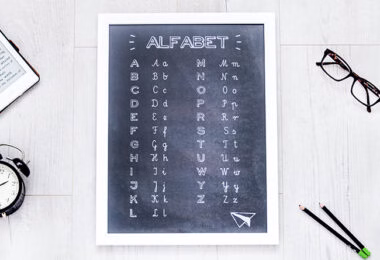 ALFABET
A A a
B B b
C C c
D D d
E E e
F F f
G G g
H H h
I I i
J J j
K K k
L L l
M M m
N N n
O O o
P P p
R R r
S S s
T T t
U U u
W W w
Y Y y
Z Z z